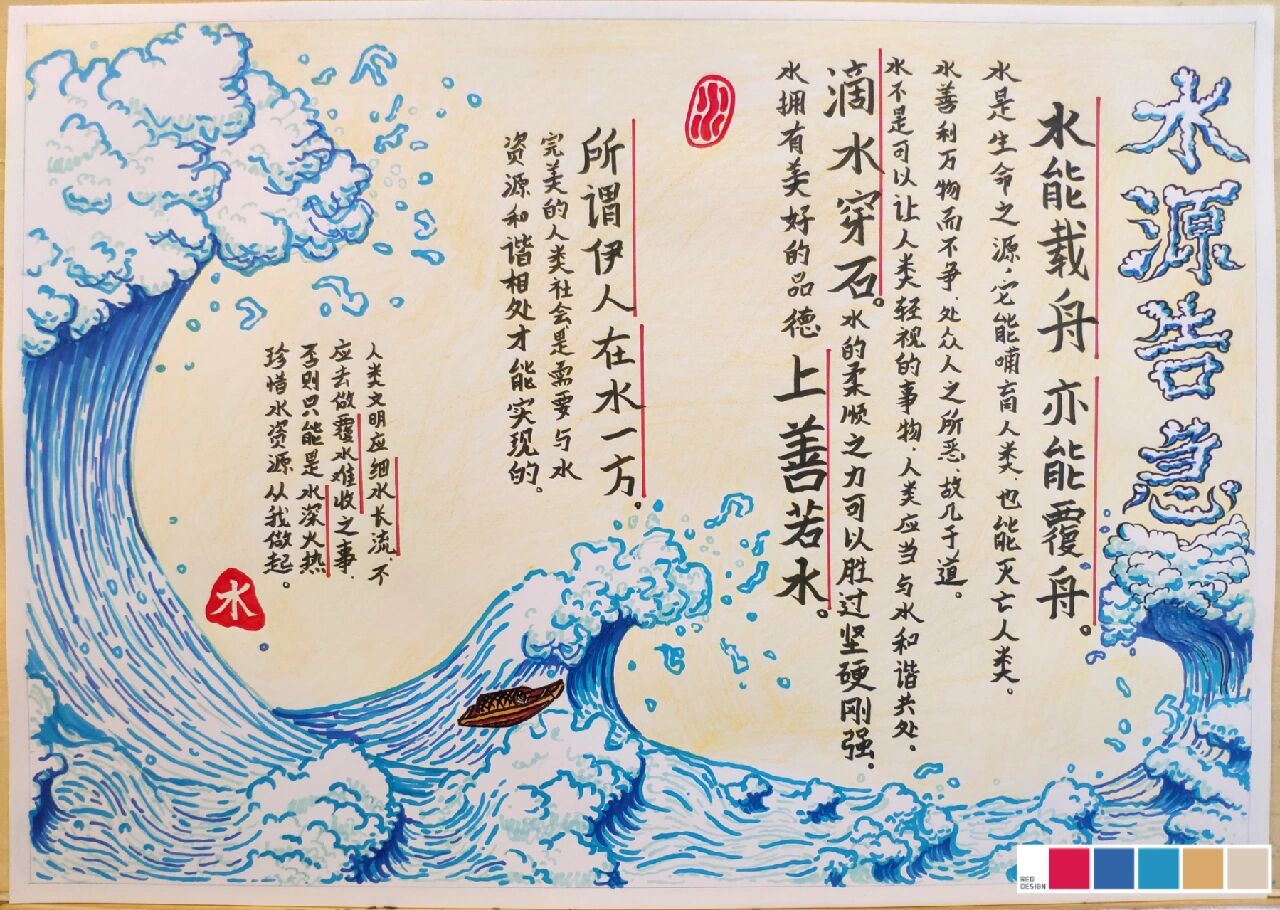 水源告急
水能载舟 亦能覆舟。
水是生命之源,它能哺育人类、也能灭亡人类。
水善利万物而不争、处众人之所恶、故几于道。
水不是可以让人类轻视的事物、人类应当与水和谐共处、
滴水穿石。水的柔顺之力可以胜过坚硬刚强。
水拥有美好的品德 上善若水。
所谓伊人 在水一方。
完美的人类社会是需要与水
资源和谐相处才能实现的。
人类文明应细水长流、不
应去做覆水难收之事、
否则只能是水深火热
珍惜水资源从我做起。
水
RED
DESIGN